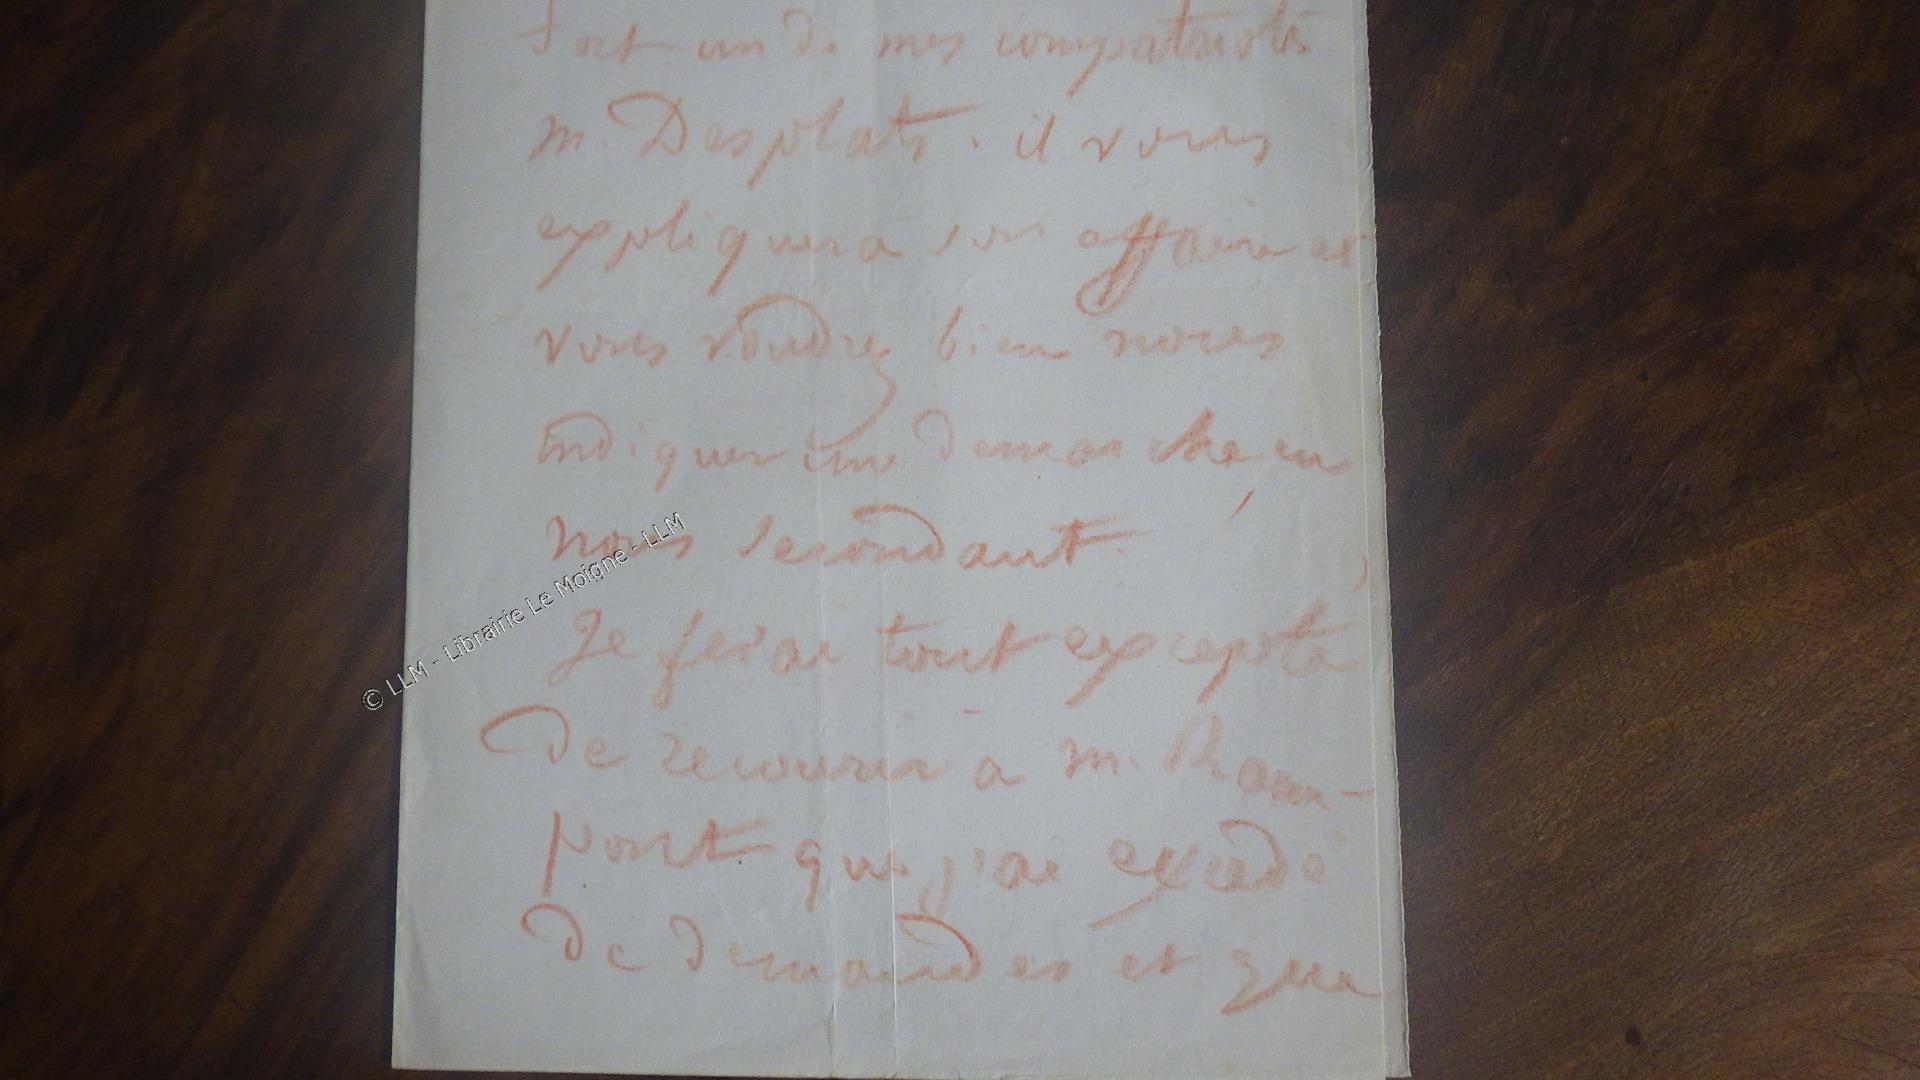 fort un de mes compatriotes
M. Desplats. il vous
expliquera son affaire et
vous voudrez bien nous
indiquer une demarche en
nous secondant.
Je ferai tout excepté
de recourir à M. Ram-
pont que j'ai excédé
de demandes et que
© LLM - Librairie Le Moigne - LLM